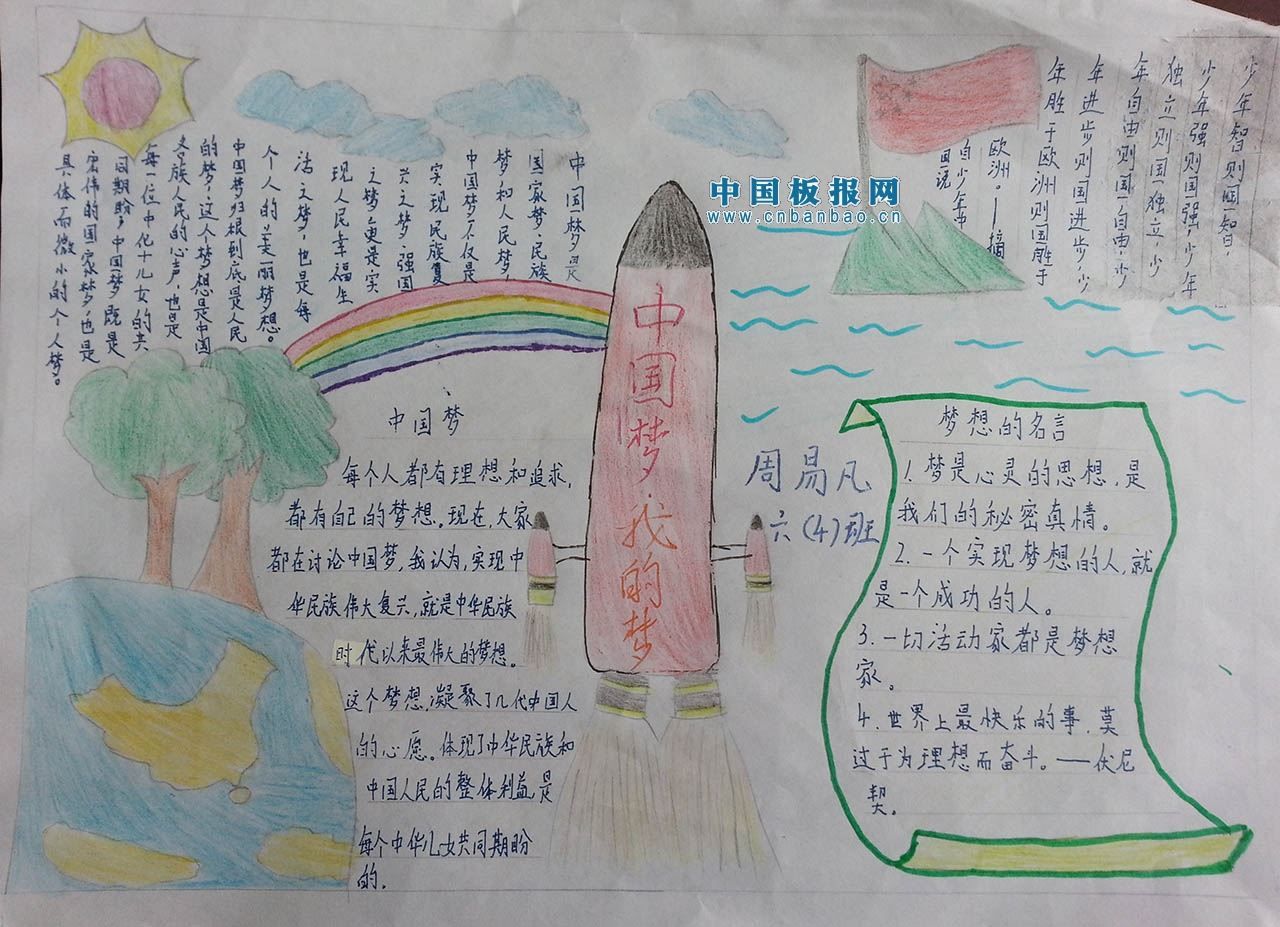 中国梦是
国家梦、民族
梦和人民梦,
中国梦不仅是
实现民族复
兴之梦、强国
之梦,更是实
现人民幸福生
活之梦,也是每
个人的美丽梦想。
中国梦归根到底是人民
的梦,这个梦想是中国
各族人民的心声,也是
每一位中华儿女的共
同期盼,中国梦既是
宏伟的国家梦,也是
具体而微小的个人梦。
少年智则国智,
少年强则国强,少年
独立则国独立,少
年自由则国自由,少
年进步则国进步,少
年胜于欧洲则国胜于
欧洲。——摘
自少年中
国说
中国板报网
www.cnbanbao.cn
中国梦·我的梦
中国梦
每个人都有理想和追求,
都有自己的梦想。现在,大家
都在讨论中国梦,我认为,实现中
华民族伟大复兴,就是中华民族
时代以来最伟大的梦想。
这个梦想,凝聚了几代中国人
的心愿。体现了中华民族和
中国人民的整体利益,是
每个中华儿女共同期盼
的.
周易凡
六(4)班
梦想的名言
1.梦是心灵的思想,是
我们的秘密真情。
2.一个实现梦想的人,就
是一个成功的人。
3.一切活动家都是梦想
家。
4.世界上最快乐的事,莫
过于为理想而奋斗。——伏尼
契。